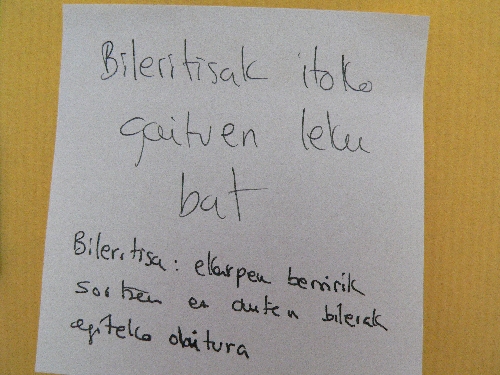 Bileritisak itoko
gaituen leku
bat
Bileritisa: ekarpen berririk
sortzen ez duten bilerak
egiteko ohitura